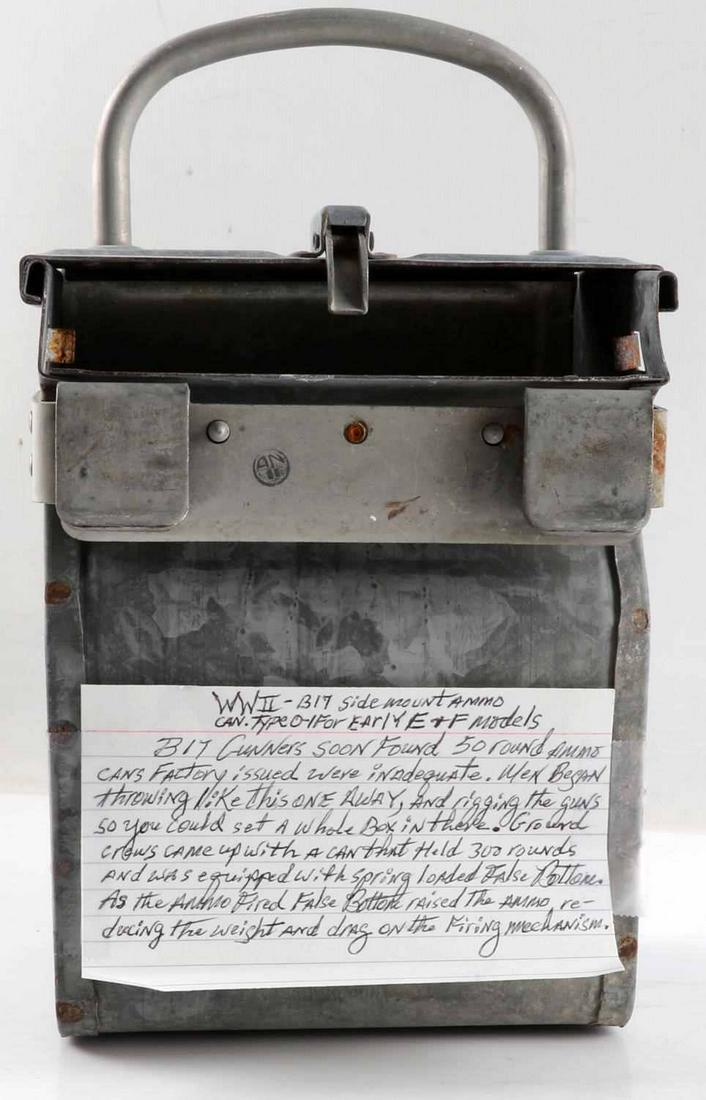 AN
WWII - B17 side mount AMMO
CAN. Type D-1 For EARLY E & F models
B17 Gunners soon Found 50 round AMMO
CANS FACTORY issued were inadequate. Men BEGAN
throwing like this ONE AWAY, And rigging the guns
so you could set A whole Box in there. Ground
crews CAME up with A CAN that Held 300 rounds
AND was equipped with spring loaded False Bottom.
As the Ammo Fired False Bottom raised the Ammo, re-
ducing the weight AND drag on the Firing mechanism.